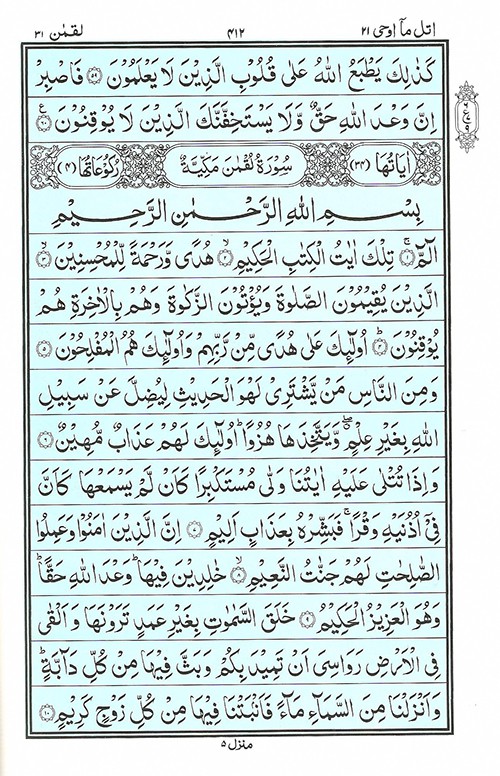 اتل مآ اوحی ۲۱ ۴۱۲ لقمٰن ۳۱
كَذٰلِكَ يَطْبَعُ اللّٰهُ عَلٰى قُلُوْبِ الَّذِيْنَ لَا يَعْلَمُوْنَ ﴿۵۹﴾ فَاصْبِرْ
اِنَّ وَعْدَ اللّٰهِ حَقٌّ وَّلَا يَسْتَخِفَّنَّكَ الَّذِيْنَ لَا يُوْقِنُوْنَ ﴿۶۰﴾
اٰيَاتُهَا (۳۴) سُوْرَةُ لُقْمٰنَ مَكِّيَّةٌ رُكُوْعَاتُهَا (۴)
بِسْمِ اللّٰهِ الرَّحْمٰنِ الرَّحِيْمِ
الٓمّٓ ﴿۱﴾ تِلْكَ اٰيٰتُ الْكِتٰبِ الْحَكِيْمِ ﴿۲﴾ هُدًى وَّرَحْمَةً لِّلْمُحْسِنِيْنَ ﴿۳﴾
الَّذِيْنَ يُقِيْمُوْنَ الصَّلٰوةَ وَيُؤْتُوْنَ الزَّكٰوةَ وَهُمْ بِالْاٰخِرَةِ هُمْ
يُوْقِنُوْنَ ﴿۴﴾ اُولٰٓئِكَ عَلٰى هُدًى مِّنْ رَّبِّهِمْ وَاُولٰٓئِكَ هُمُ الْمُفْلِحُوْنَ ﴿۵﴾
وَمِنَ النَّاسِ مَنْ يَّشْتَرِىْ لَهْوَ الْحَدِيْثِ لِيُضِلَّ عَنْ سَبِيْلِ
اللّٰهِ بِغَيْرِ عِلْمٍ وَّيَتَّخِذَهَا هُزُوًا اُولٰٓئِكَ لَهُمْ عَذَابٌ مُّهِيْنٌ ﴿۶﴾
وَاِذَا تُتْلٰى عَلَيْهِ اٰيٰتُنَا وَلّٰى مُسْتَكْبِرًا كَاَنْ لَّمْ يَسْمَعْهَا كَاَنَّ
فِىْٓ اُذُنَيْهِ وَقْرًا فَبَشِّرْهُ بِعَذَابٍ اَلِيْمٍ ﴿۷﴾ اِنَّ الَّذِيْنَ اٰمَنُوْا وَعَمِلُوا
الصّٰلِحٰتِ لَهُمْ جَنّٰتُ النَّعِيْمِ ﴿۸﴾ خٰلِدِيْنَ فِيْهَا وَعْدَ اللّٰهِ حَقًّا
وَهُوَ الْعَزِيْزُ الْحَكِيْمُ ﴿۹﴾ خَلَقَ السَّمٰوٰتِ بِغَيْرِ عَمَدٍ تَرَوْنَهَا وَاَلْقٰى
فِى الْاَرْضِ رَوَاسِىَ اَنْ تَمِيْدَ بِكُمْ وَبَثَّ فِيْهَا مِنْ كُلِّ دَآبَّةٍ
وَاَنْزَلْنَا مِنَ السَّمَآءِ مَآءً فَاَنْۢبَتْنَا فِيْهَا مِنْ كُلِّ زَوْجٍ كَرِيْمٍ ﴿۱۰﴾
منزل ۵